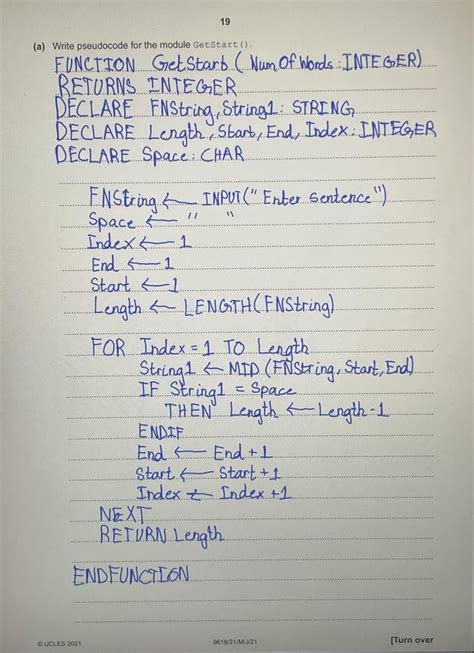 19
(a) Write pseudocode for the module GetStart().
FUNCTION GetStart ( NumOfWords : INTEGER)
RETURNS INTEGER
DECLARE FNString, String1 : STRING
DECLARE Length, Start, End, Index : INTEGER
DECLARE Space : CHAR
FNString ← INPUT("Enter sentence")
Space ← " "
Index ← 1
End ← 1
Start ← 1
Length ← LENGTH(FNString)
FOR Index = 1 TO Length
String1 ← MID (FNString, Start, End)
IF String1 = Space
THEN Length ← Length-1
ENDIF
End ← End +1
Start ← Start +1
Index ← Index +1
NEXT
RETURN Length
ENDFUNCTION
© UCLES 2021
9618/21/M/J/21
[Turn over